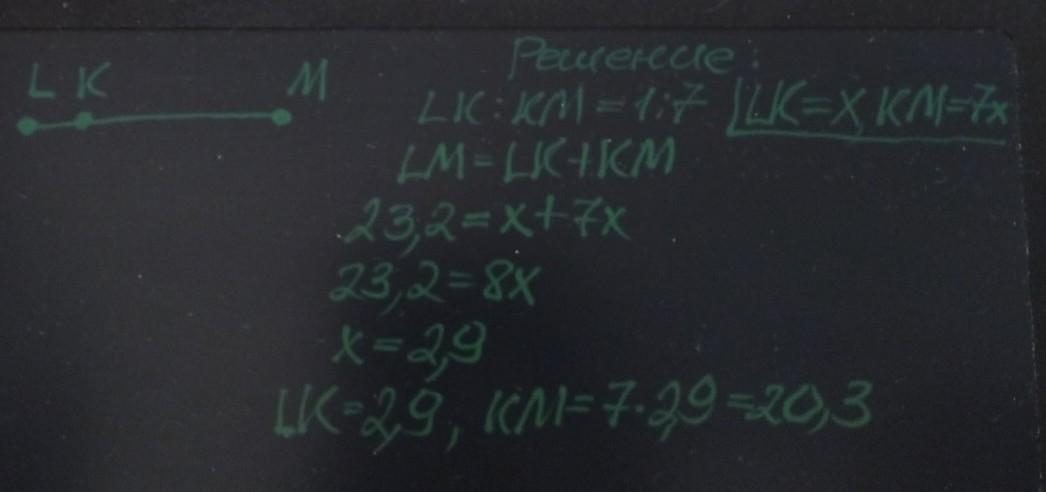 L K M
Решение:
LK:KM=1:7 LK=x, KM=7x
LM=LK+KM
23,2=x+7x
23,2=8x
x=2,9
LK=2,9, KM=7·2,9=20,3